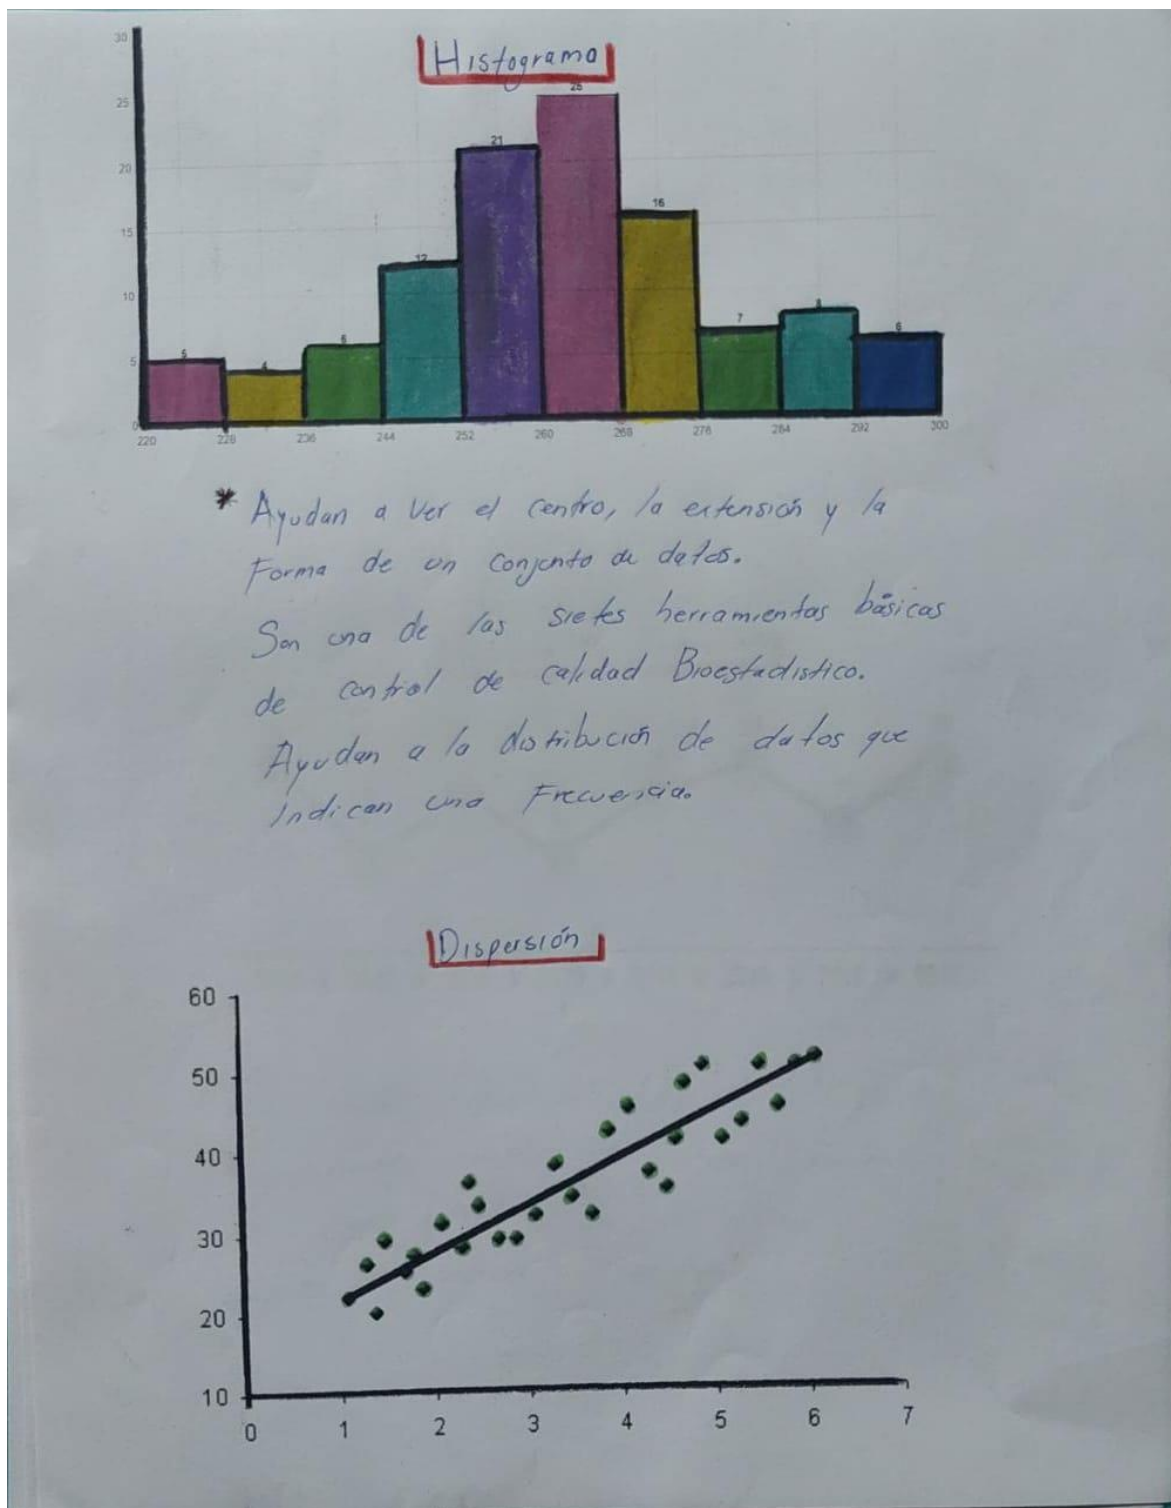 Histograma
30
25
20
15
10
5
0
5
4
6
12
21
25
16
7
8
6
220 228 236 244 252 260 268 276 284 292 300
* Ayudan a Ver el Centro, la extensión y la
Forma de un Conjunto de datos.
Son una de las sietes herramientas básicas
de control de calidad Bioestadistico.
Ayudan a la distribución de datos que
Indican una Frecuencia.
Dispersión
60
50
40
30
20
10
0 1 2 3 4 5 6 7